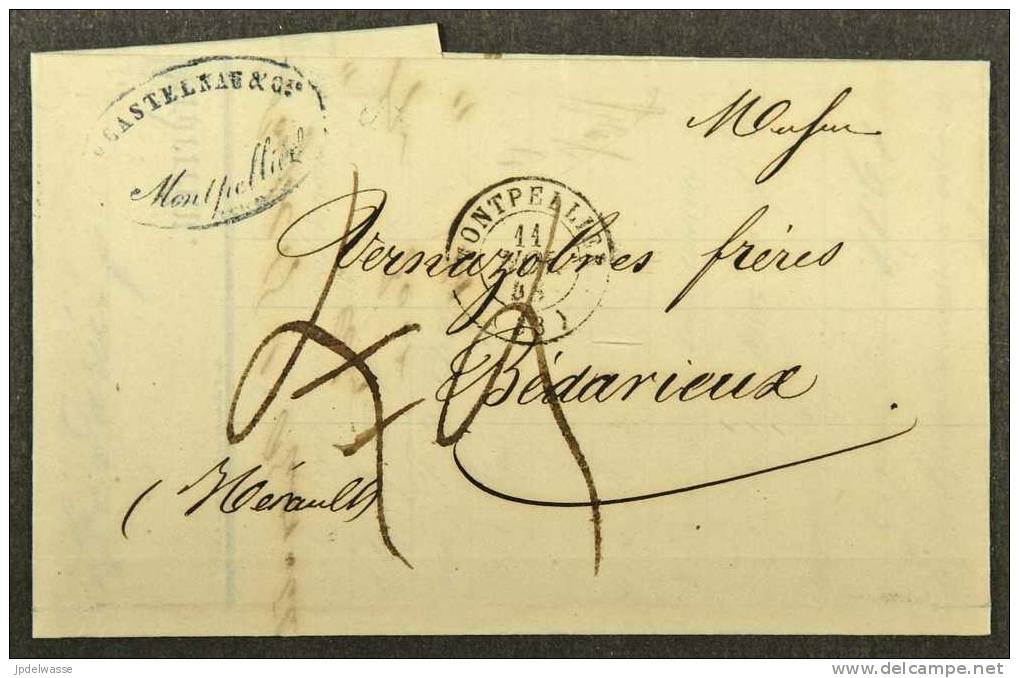 CASTELNAU & Cie
Montpellier
Monsieur
MONTPELLIER
11
(33)
Vernazobres frères
Bédarieux
(Hérault)
jpdelwasse
delcampe.net